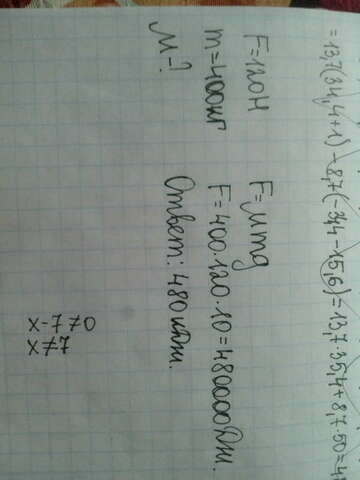 = 13,7(34,4+1) - 8,7(-34,4-15,6) = 13,7·35,4 + 8,7·50 = 4
F=120Н
m=400кг
М-?
F=μmg
F=400·120·10=480000Дж.
Ответ: 480кДж.
x-7≠0
x≠7